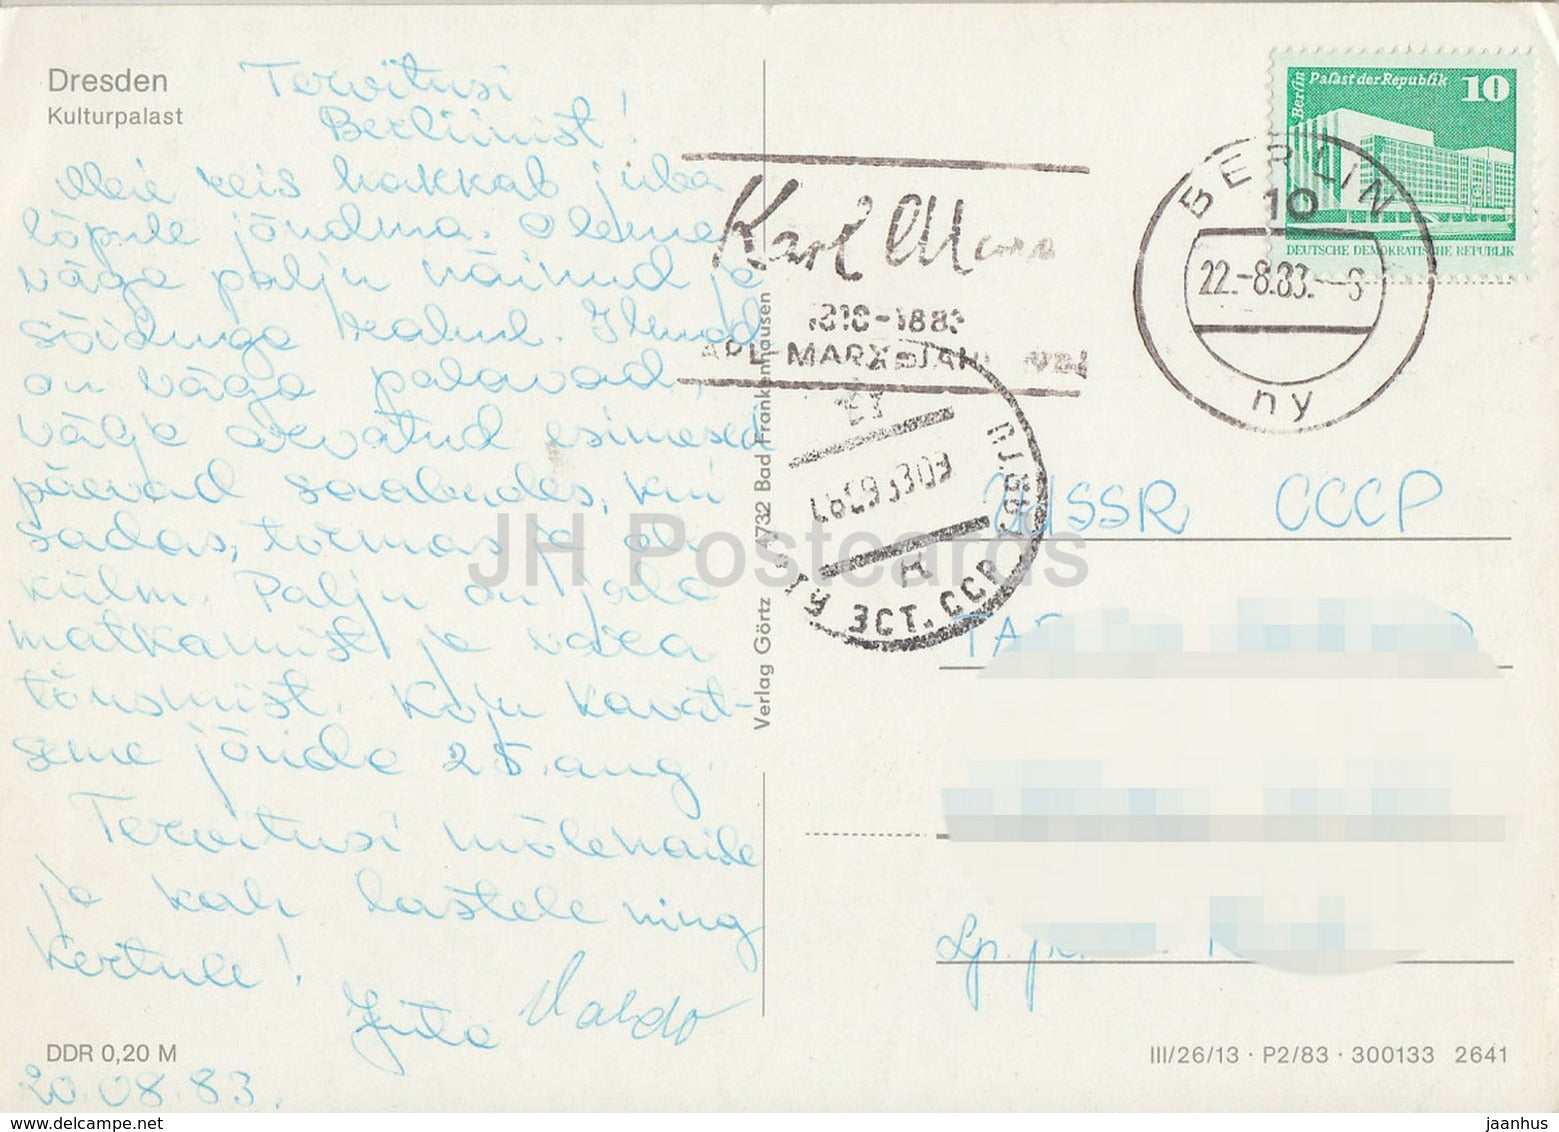 Dresden
Kulturpalast
Tervitusi
Berliinist!
Meie reis hakkab juba
lõpule jõudma. Oleme
väga palju näinud ja
sõiduga rahul. Ilmad
on väga palavad,
välja arvatud esimesed
päevad saabudes, kui
sadas, tormas ja oli
külm. Palju on jala
matkamist ja vara
tõusmist. Koju kavat-
seme jõuda 25. aug.
Tervitusi mõlemaile
ja kah lastele ning
Kertule!
Juta Valdo
DDR 0,20 M
20.08.83.
Verlag Görtz 4732 Bad Frankenhausen
Karl Marx
1818-1883
KARL-MARX-JAHR
Berlin Palast der Republik 10
DEUTSCHE DEMOKRATISCHE REPUBLIK
BERLIN
10
22.-8.83.
ny
ЭСТ. ССР
USSR CCCP
Lp.
III/26/13 · P2/83 · 300133 2641
JH Postcards
www.delcampe.net
jaanhus